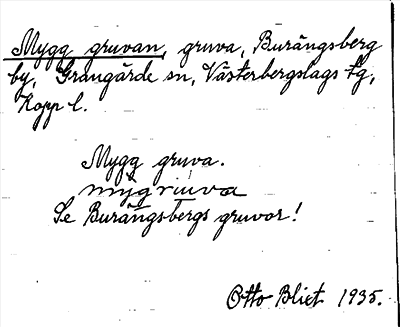 Mygg gruvan, gruva, Burängsberg
by, Grangärde sn, Västerbergslags tg,
Kopp l.
Mygg gruva.
Se Burängsbergs gruvor!
Otto Blixt 1935.